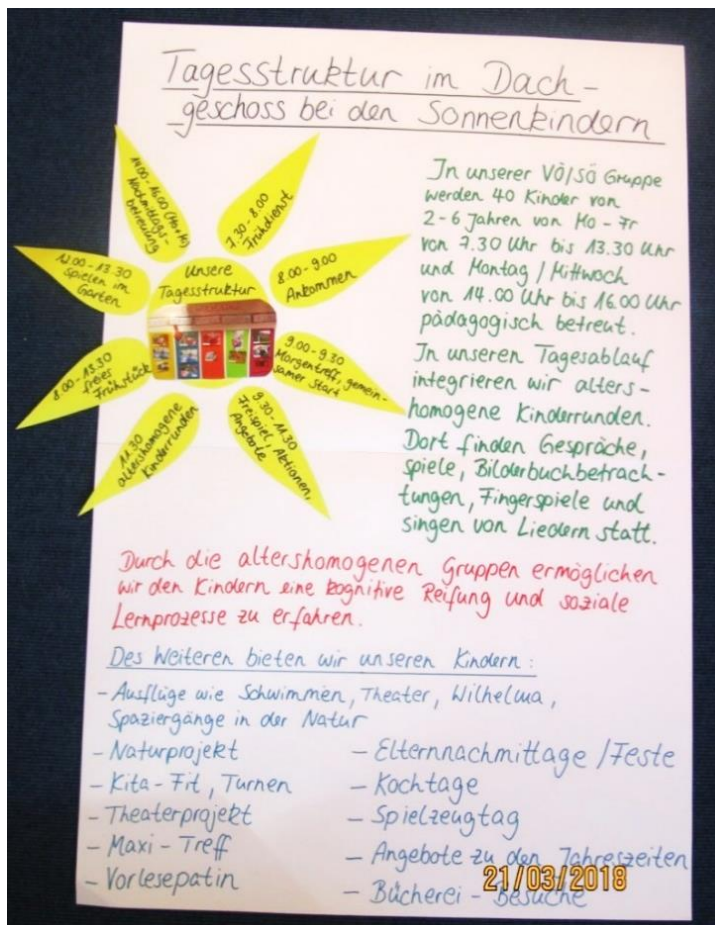 Tagesstruktur im Dach-
geschoss bei den Sonnenkindern
Unsere
Tagesstruktur
7.30-8.00
Frühdienst
8.00-9.00
Ankommen
9.00-9.30
Morgentreff, gemein-
samer Start
9.30-11.30
Freispiel, Aktionen,
Angebote
11.30
altershomogene
Kinderrunden
8.00-13.30
freies
Frühstück
12.00-13.30
spielen im
Garten
14.00-16.00
Nachmittags-
betreuung
In unserer VÖ/SÖ Gruppe
werden 40 Kinder von
2-6 Jahren von Mo-Fr
von 7.30 Uhr bis 13.30 Uhr
und Montag/Mittwoch
von 14.00 Uhr bis 16.00 Uhr
pädagogisch betreut.
In unseren Tagesablauf
integrieren wir alters-
homogene Kinderrunden.
Dort finden Gespräche,
spiele, Bilderbuchbetrach-
tungen, Fingerspiele und
singen von Liedern statt.
Durch die altershomogenen Gruppen ermöglichen
wir den Kindern eine kognitive Reifung und soziale
Lernprozesse zu erfahren.
Des Weiteren bieten wir unseren Kindern:
- Ausflüge wie Schwimmen, Theater, Wilhelma,
Spaziergänge in der Natur
- Naturprojekt
- Kita-Fit, Turnen
- Theaterprojekt
- Maxi-Treff
- Vorlesepatin
- Elternnachmittage/Feste
- Kochtage
- Spielzeugtag
- Angebote zu den Jahreszeiten
- Bücherei-Besuche
21/03/2018